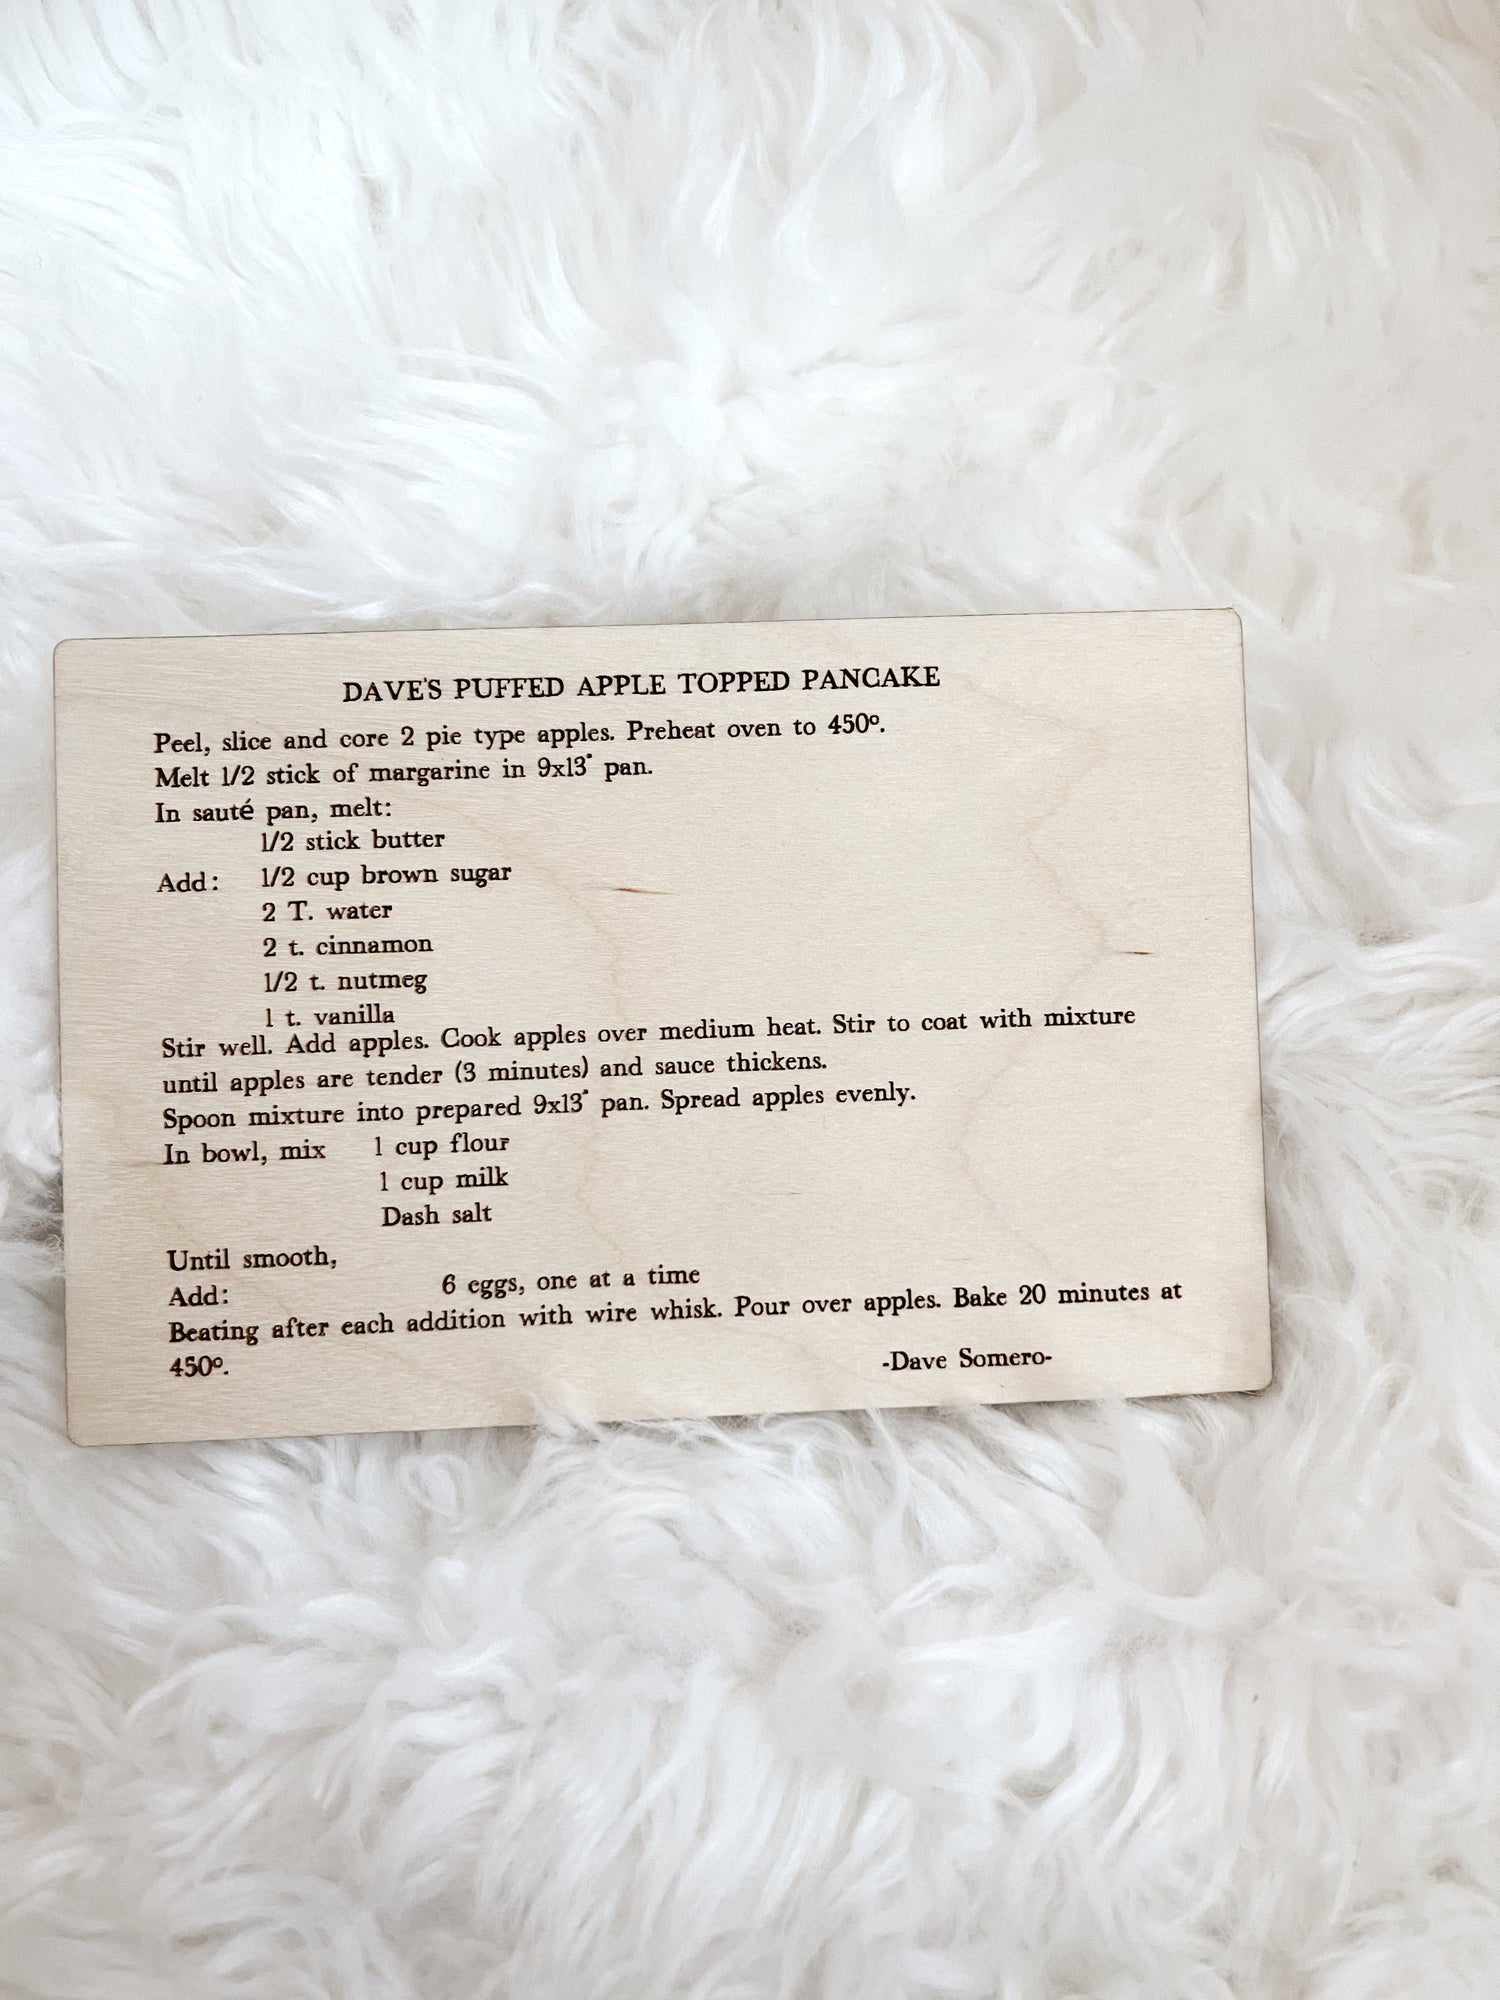 DAVE'S PUFFED APPLE TOPPED PANCAKE
Peel, slice and core 2 pie type apples. Preheat oven to 450º.
Melt 1/2 stick of margarine in 9x13" pan.
In sauté pan, melt:
1/2 stick butter
Add: 1/2 cup brown sugar
2 T. water
2 t. cinnamon
1/2 t. nutmeg
1 t. vanilla
Stir well. Add apples. Cook apples over medium heat. Stir to coat with mixture
until apples are tender (3 minutes) and sauce thickens.
Spoon mixture into prepared 9x13" pan. Spread apples evenly.
In bowl, mix 1 cup flour
1 cup milk
Dash salt
Until smooth,
Add: 6 eggs, one at a time
Beating after each addition with wire whisk. Pour over apples. Bake 20 minutes at
450º. -Dave Somero-